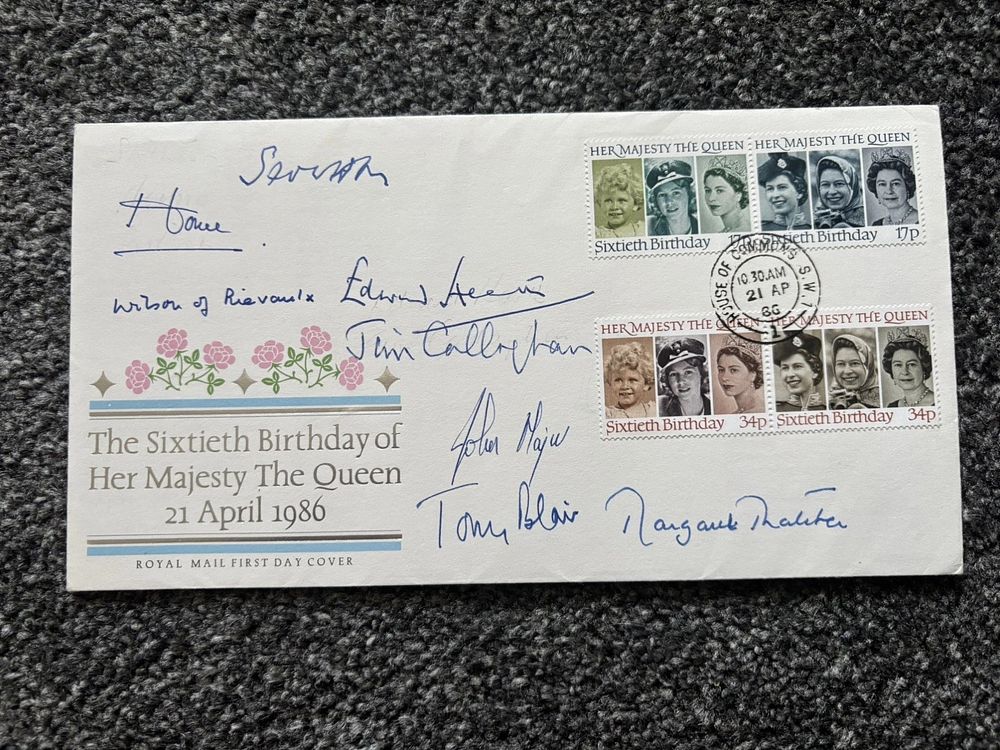 Home
Wilson of Rievaulx
Edward Heath
Jim Callaghan
John Major
Tony Blair
Margaret Thatcher
The Sixtieth Birthday of
Her Majesty The Queen
21 April 1986
ROYAL MAIL FIRST DAY COVER
HER MAJESTY THE QUEEN
HER MAJESTY THE QUEEN
Sixtieth Birthday 17p
Sixtieth Birthday 17p
HOUSE OF COMMONS S.W.1
10.30AM
21 AP
86
1
HER MAJESTY THE QUEEN
HER MAJESTY THE QUEEN
Sixtieth Birthday 34p
Sixtieth Birthday 34p